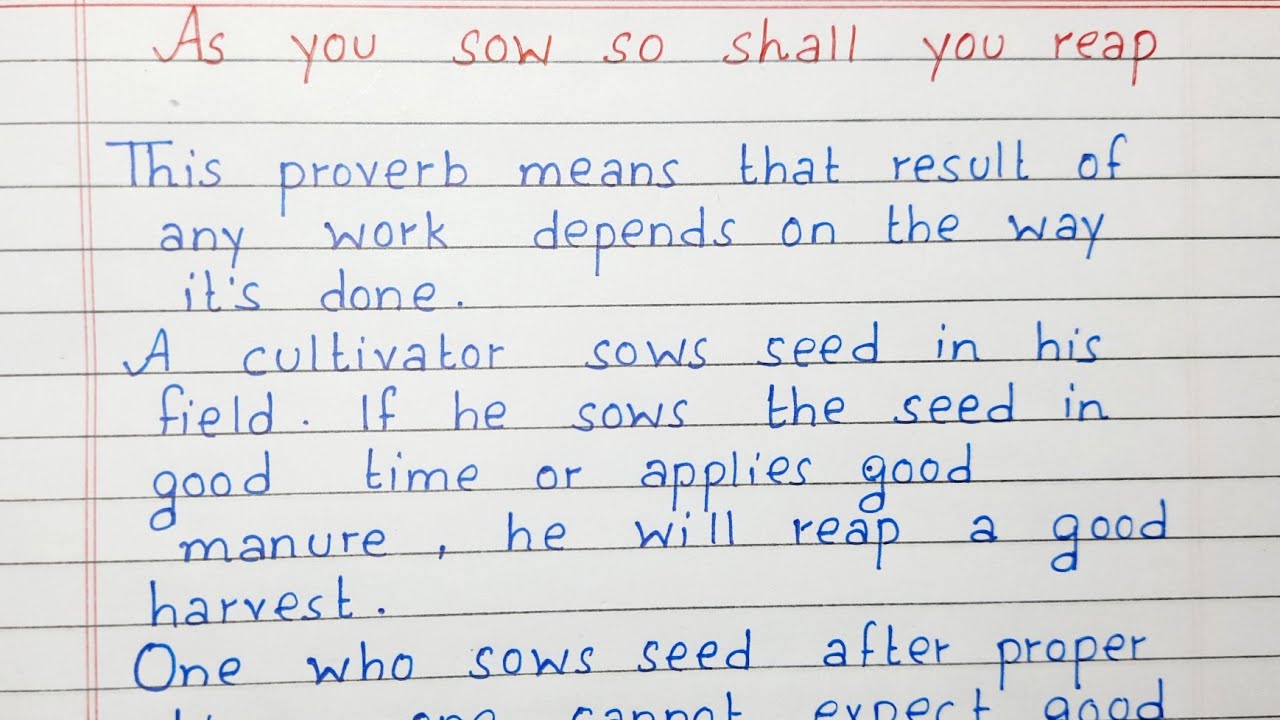 As you sow so shall you reap
This proverb means that result of
any work depends on the way
it's done.
A cultivator sows seed in his
field. If he sows the seed in
good time or applies good
manure, he will reap a good
harvest.
One who sows seed after proper
one cannot expect good